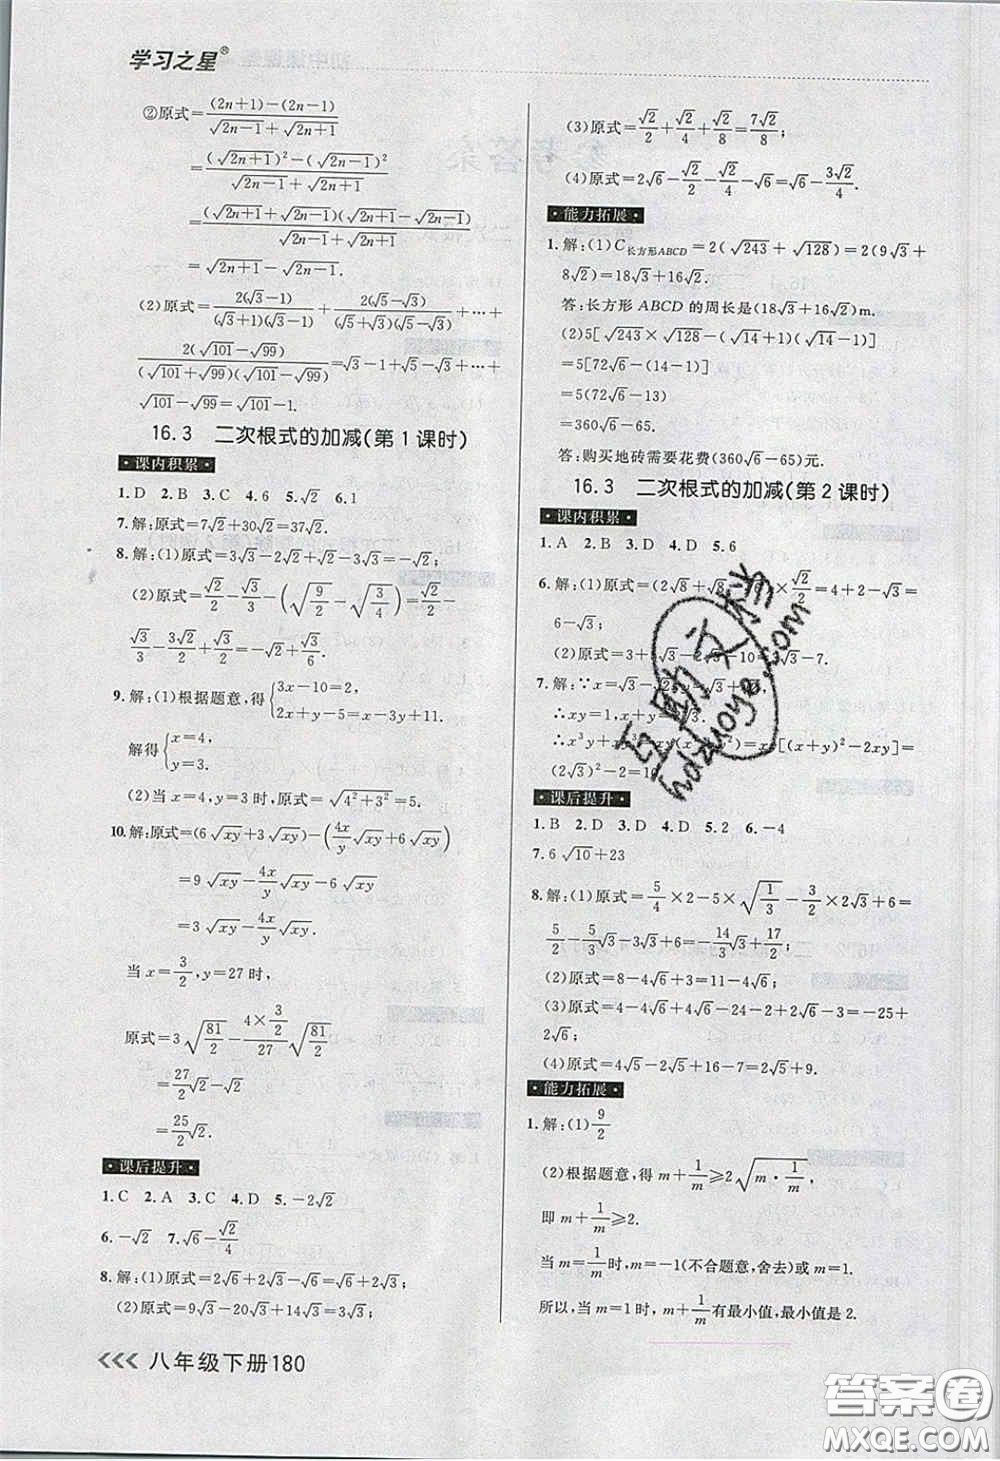 学习之星®
②原式=\frac{(2n+1)-(2n-1)}{√(2n-1)+√(2n+1)}
=\frac{(√(2n+1))²-(√(2n-1))²}{√(2n-1)+√(2n+1)}
=\frac{(√(2n+1)+√(2n-1))(√(2n+1)-√(2n-1))}{√(2n-1)+√(2n+1)}
=√(2n+1)-√(2n-1).
(2)原式=\frac{2(√3-1)}{(√3+1)(√3-1)}+\frac{2(√5-√3)}{(√5+√3)(√5-√3)}+…+
\frac{2(√101-√99)}{(√101+√99)(√101-√99)}=√3-1+√5-√3+…+
√101-√99=√101-1.
16.3 二次根式的加减(第1课时)
课内积累
1.D 2.B 3.C 4.6 5.√2 6.1
7.解:原式=7√2+30√2=37√2.
8.解:(1)原式=3√3-2√2+√2-3√3=-√2.
(2)原式=\frac{√2}{2}-\frac{√3}{3}-(√(9/2)-√(3/4))=\frac{√2}{2}-
\frac{√3}{3}-\frac{3√2}{2}+\frac{√3}{2}=-√2+\frac{√3}{6}.
9.解:(1)根据题意,得{3x-10=2, 2x+y-5=x-3y+11.
解得{x=4, y=3.
(2)当x=4,y=3时,原式=√(4²+3²)=5.
10.解:原式=(6√xy+3√xy)-(\frac{4x}{y}√xy+6√xy)
=9√xy-\frac{4x}{y}√xy-6√xy
=3√xy-\frac{4x}{y}√xy.
当x=\frac{3}{2},y=27时,
原式=3√(81/2)-\frac{4×\frac{3}{2}}{27}√(81/2)
=\frac{27}{2}√2-√2
=\frac{25}{2}√2.
课后提升
1.C 2.A 3.C 4.D 5.-2√2
6.-√2 7.√6-\frac{√2}{4}
8.解:(1)原式=2√6+2√3-√6=√6+2√3;
(2)原式=9√3-20√3+14√3=3√3;
八年级下册180
(3)原式=\frac{√2}{2}+\frac{√2}{4}+\frac{√2}{8}=\frac{7√2}{8};
(4)原式=2√6-\frac{√2}{2}-\frac{√2}{4}-√6=√6-\frac{3√2}{4}.
能力拓展
1.解:(1)C长方形ABCD=2(√243+√128)=2(9√3+
8√2)=18√3+16√2.
答:长方形ABCD的周长是(18√3+16√2)m.
(2)5[√243×√128-(√14+1)(√14-1)]
=5[72√6-(14-1)]
=5(72√6-13)
=360√6-65.
答:购买地砖需要花费(360√6-65)元.
16.3 二次根式的加减(第2课时)
课内积累
1.A 2.B 3.D 4.D 5.6
6.解:(1)原式=(2√8+√8 ×\frac{√2}{2}=4+2-√3=
6-√3;
(2)原式=3+ √3-2√3-10= √3-7.
7.解:∵x=√3-√2,
∴xy=1,x+y=
∴x³y+ =xy(x² =xy[(x+y)²-2xy]=
(2√3)²-2=10
课后提升
1.B 2.D 3.D 4.D 5.2 6.-4
7.6√10+23
8.解:(1)原式=\frac{5}{4}×2-5×√(1/3)-\frac{3}{2}×2√3+6=
\frac{5}{2}-\frac{5}{3}√3-3√3+6=-\frac{14}{3}√3+\frac{17}{2};
(2)原式=8-4√6+3=11-4√6.
(3)原式=4-4√6+4√6-24-2+2√6-3=-25+
2√6;
(4)原式=4√5-2√5+16-7=2√5+9.
能力拓展
1.解:(1)\frac{9}{2}
(2)根据题意,得m+\frac{1}{m}≥2√(m·\frac{1}{m}),
即m+\frac{1}{m}≥2.
当m=\frac{1}{m}时,m=-1(不合题意,舍去)或m=1.
所以,当m=1时,m+\frac{1}{m}有最小值,最小值是2.
互助文档
hdzuoye.com
答案圈
MXQE.COM